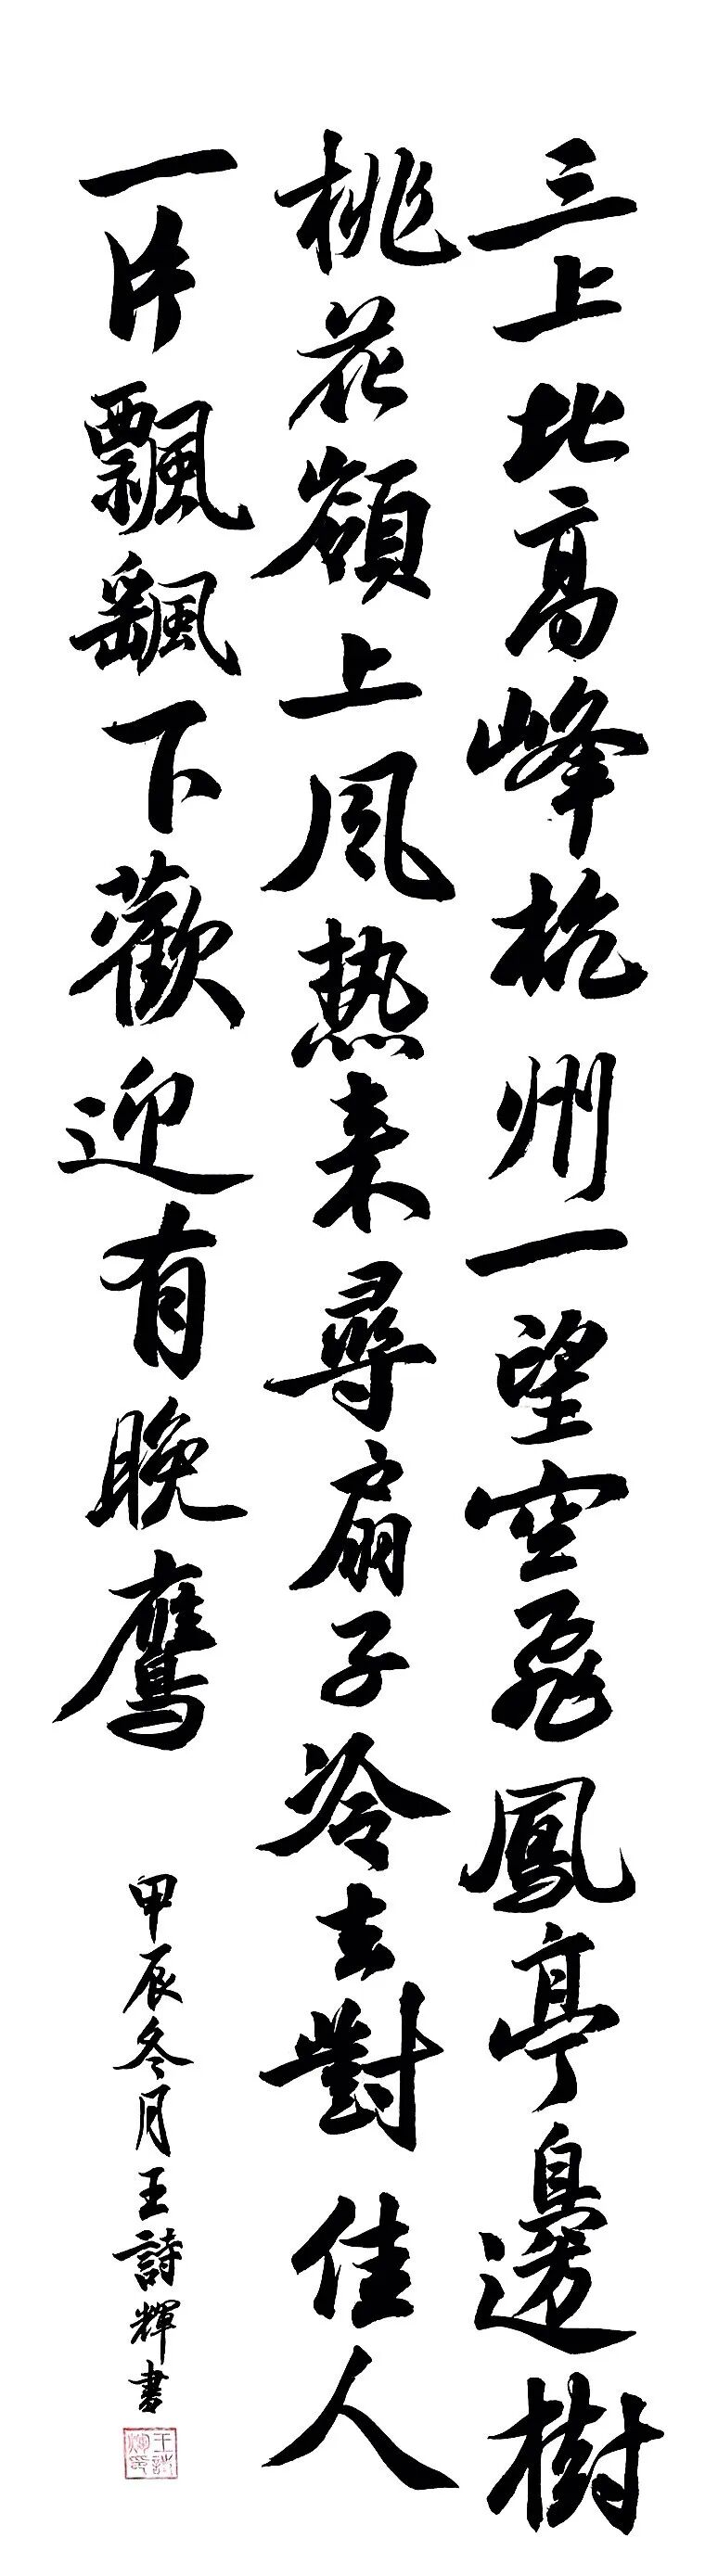 三上北高峰杭州一望空飛鳳亭邊樹
桃花嶺上风热来尋扇子冷去對佳人
一片飄飖下歡迎有晚鷹
甲辰冬月王詩輝書